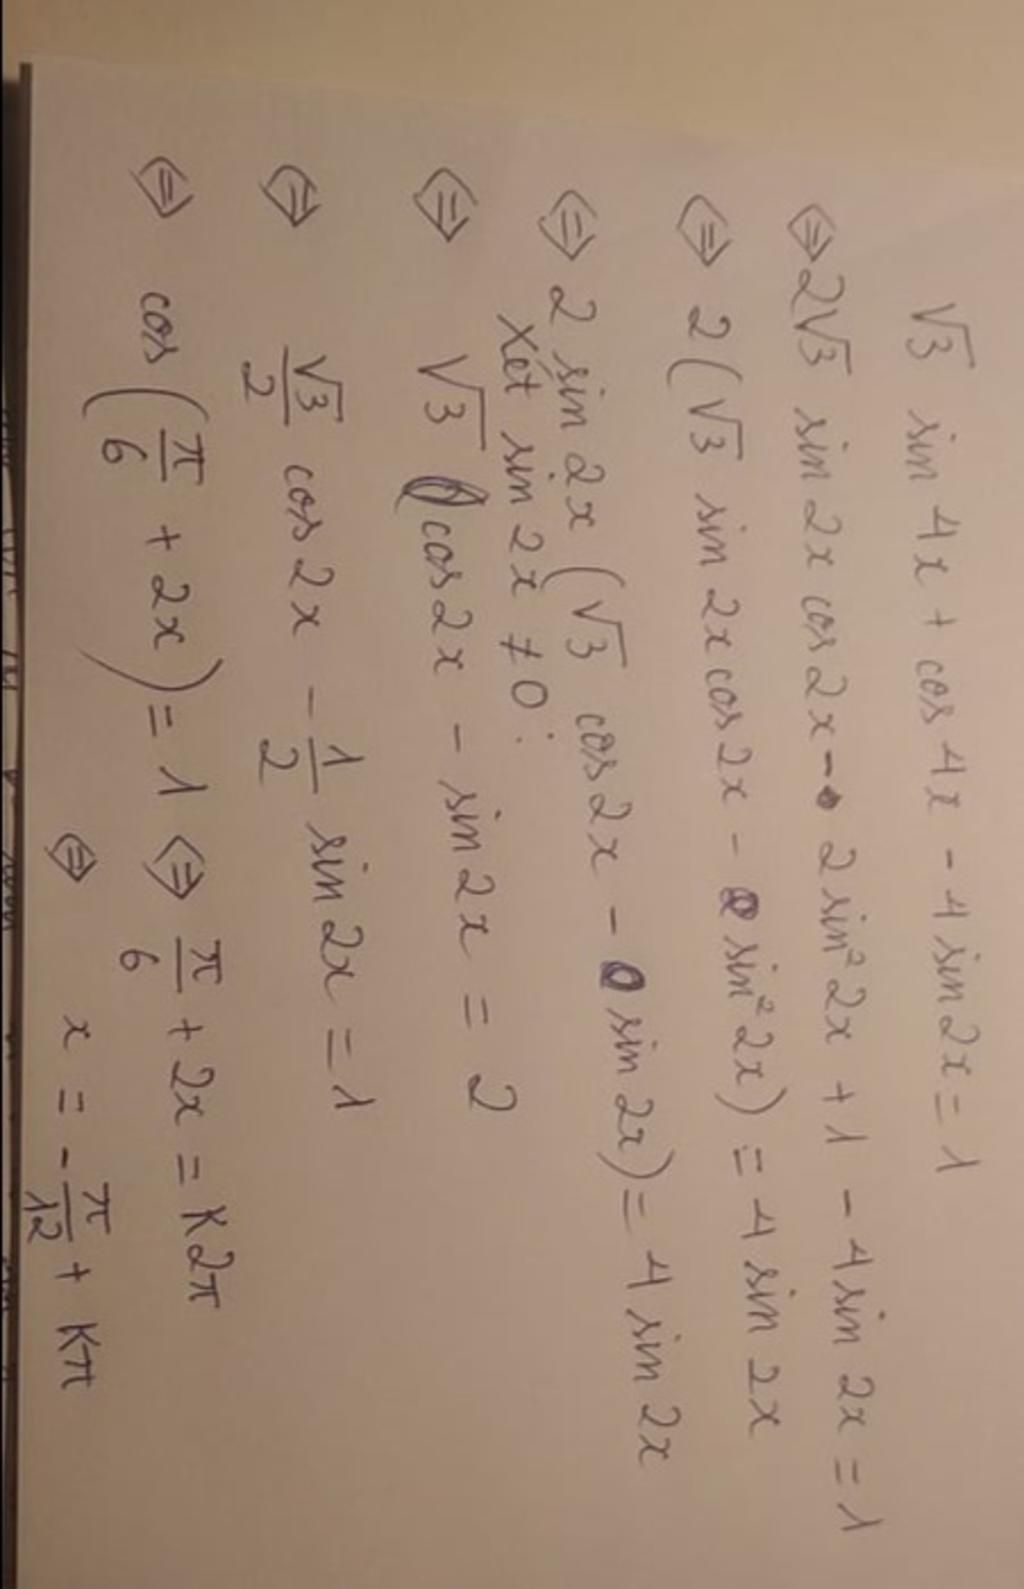 √3 sin 4x + cos 4x - 4 sin 2x = 1
⇔ 2√3 sin 2x cos 2x - 2 sin² 2x + 1 - 4 sin 2x = 1
⇔ 2(√3 sin 2x cos 2x - sin² 2x) = 4 sin 2x
⇔ 2 sin 2x (√3 cos 2x - sin 2x) = 4 sin 2x
Xét sin 2x ≠ 0:
⇔ √3 cos 2x - sin 2x = 2
⇔ √3/2 cos 2x - 1/2 sin 2x = 1
⇔ cos (π/6 + 2x) = 1 ⇔ π/6 + 2x = k2π
⇔ x = -π/12 + kπ